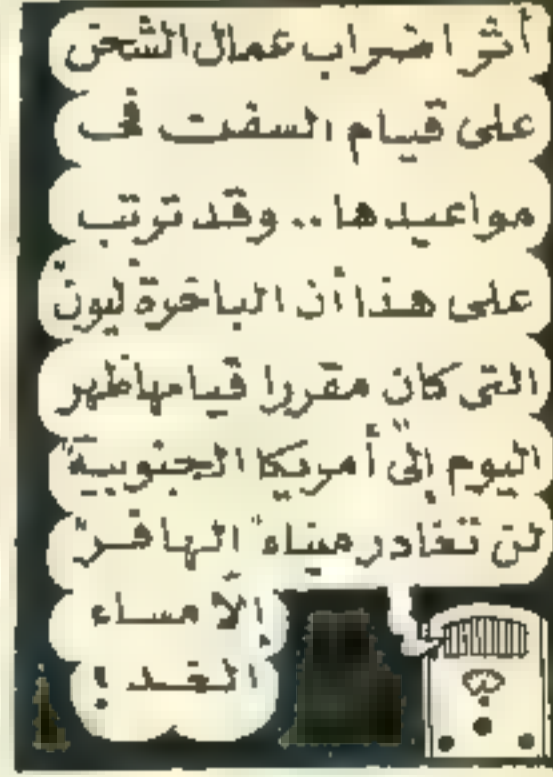 أثر اضراب عمال الشحن
على قيام السفن فى
مواعيدها .. وقد ترتب
على هذا أن الباخرة "ليون"
التى كان مقررا قيامها ظهر
اليوم إلى أمريكا الجنوبية
لن تغادر ميناء "الهافر"
إلا مساء
الغد !